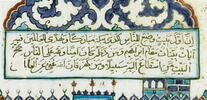 ان اول بيت وضع للناس للذي ببكة مباركا وهدى للعالمين فيه
آيات بينات مقام ابراهيم ومن دخله كان آمنا ولله على الناس حج
البيت من استطاع اليه سبيلا ومن كفر فان الله غني عن